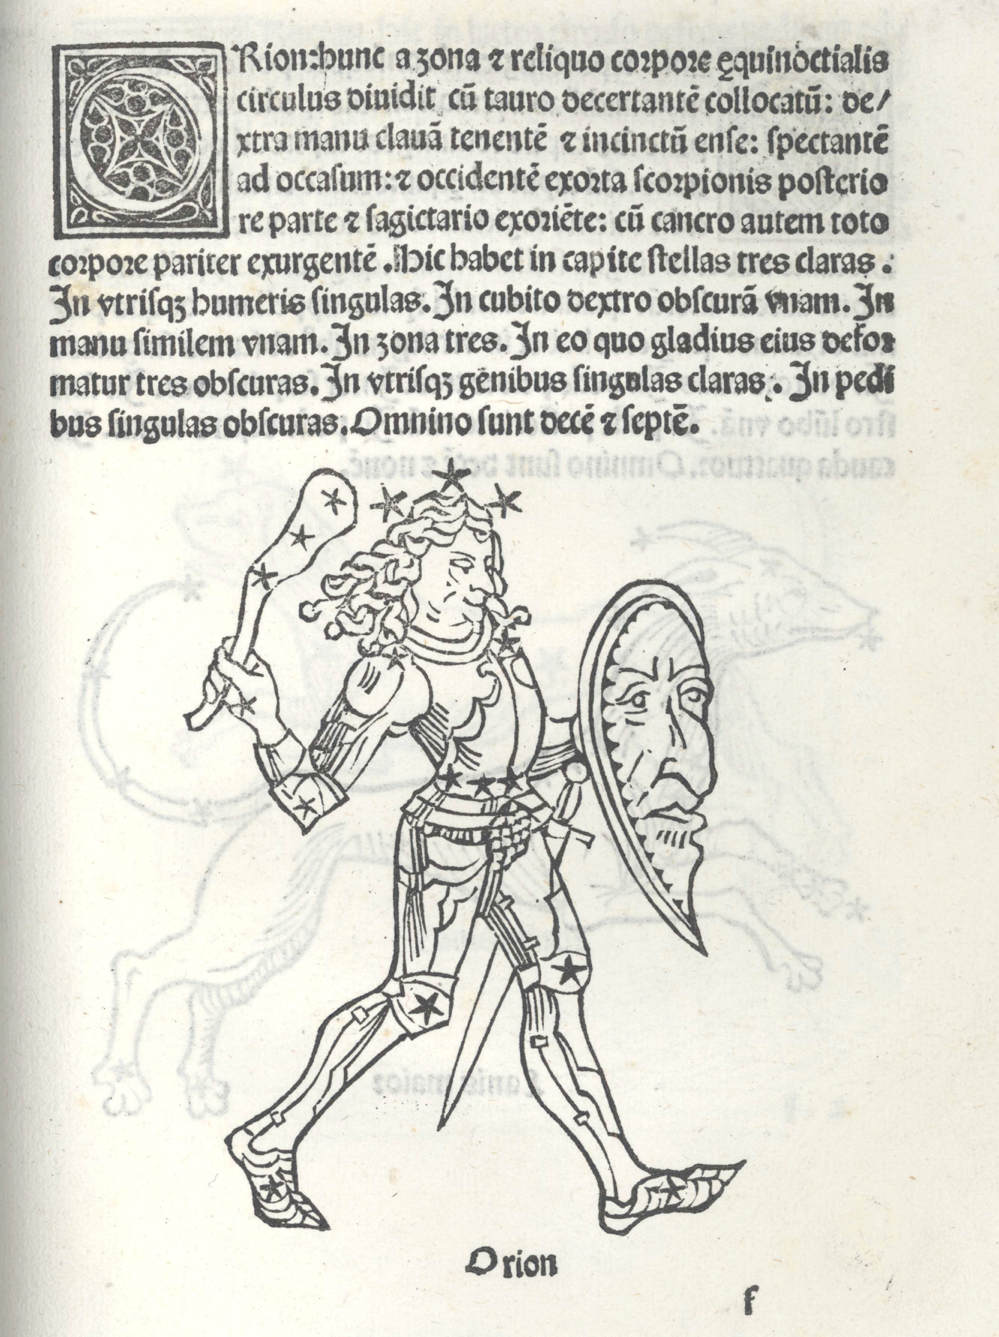 ORion: hunc a zona ⁊ reliquo corpore ęquinoctialis
circulus diuidit cū tauro decertantē collocatū: de/
xtra manu clauā tenentē ⁊ incinctū ense: spectantē
ad occasum: ⁊ occidentē exorta scorpionis posterio
re parte ⁊ sagictario exoriēte: cū cancro autem toto
corpore pariter exurgentē. Hic habet in capite stellas tres claras.
In vtrisqʒ humeris singulas. In cubito dextro obscurā vnam. In
manu similem vnam. In zona tres. In eo quo gladius eius defor
matur tres obscuras. In vtrisqʒ genibus singulas claras:. In pedi
bus singulas obscuras. Omnino sunt decē ⁊ septē.
Orion
f